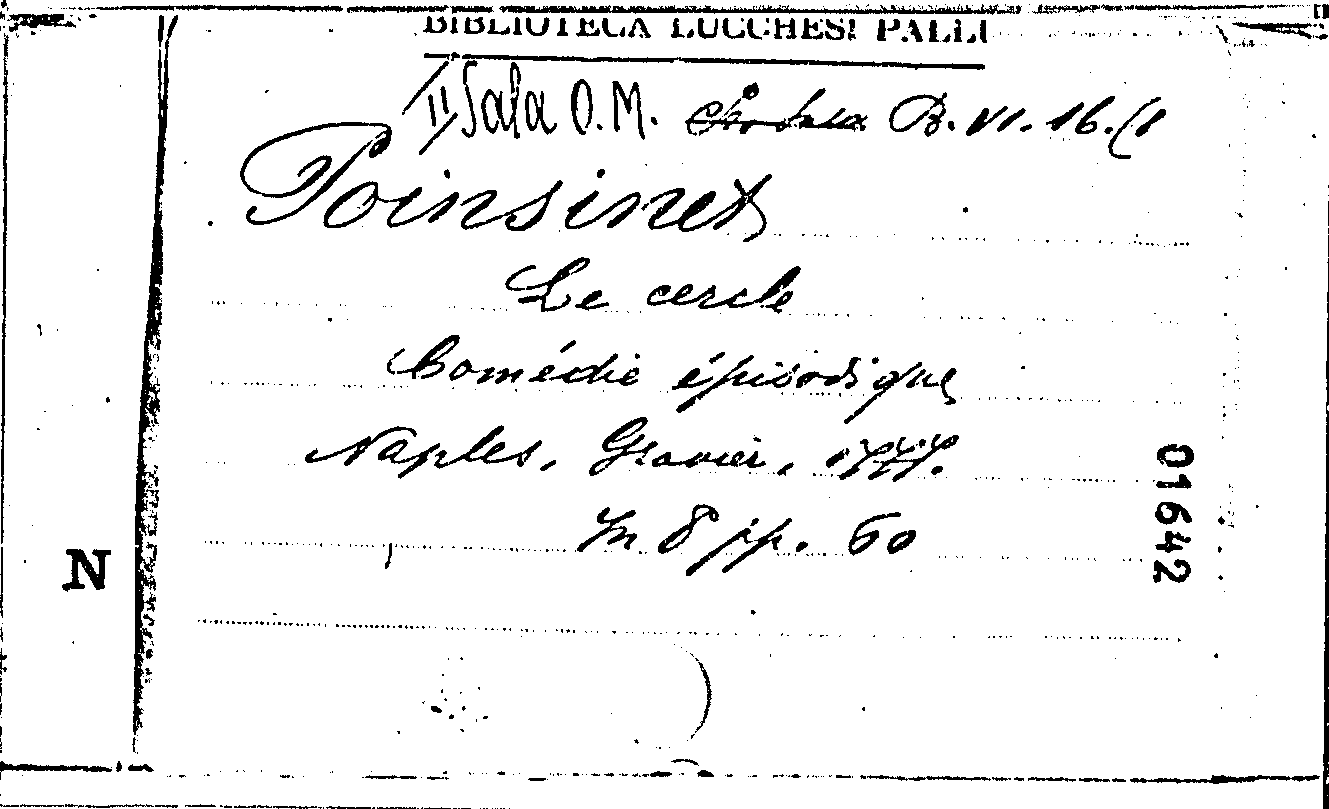 BIBLIOTECA LUCCHESI PALLI
II Sala O.M. B. VI. 16. (8
Poinsinet
Le cercle
Comédie épisodique
Naples, Gravier, 1777.
In 8 pp. 60
01642
N